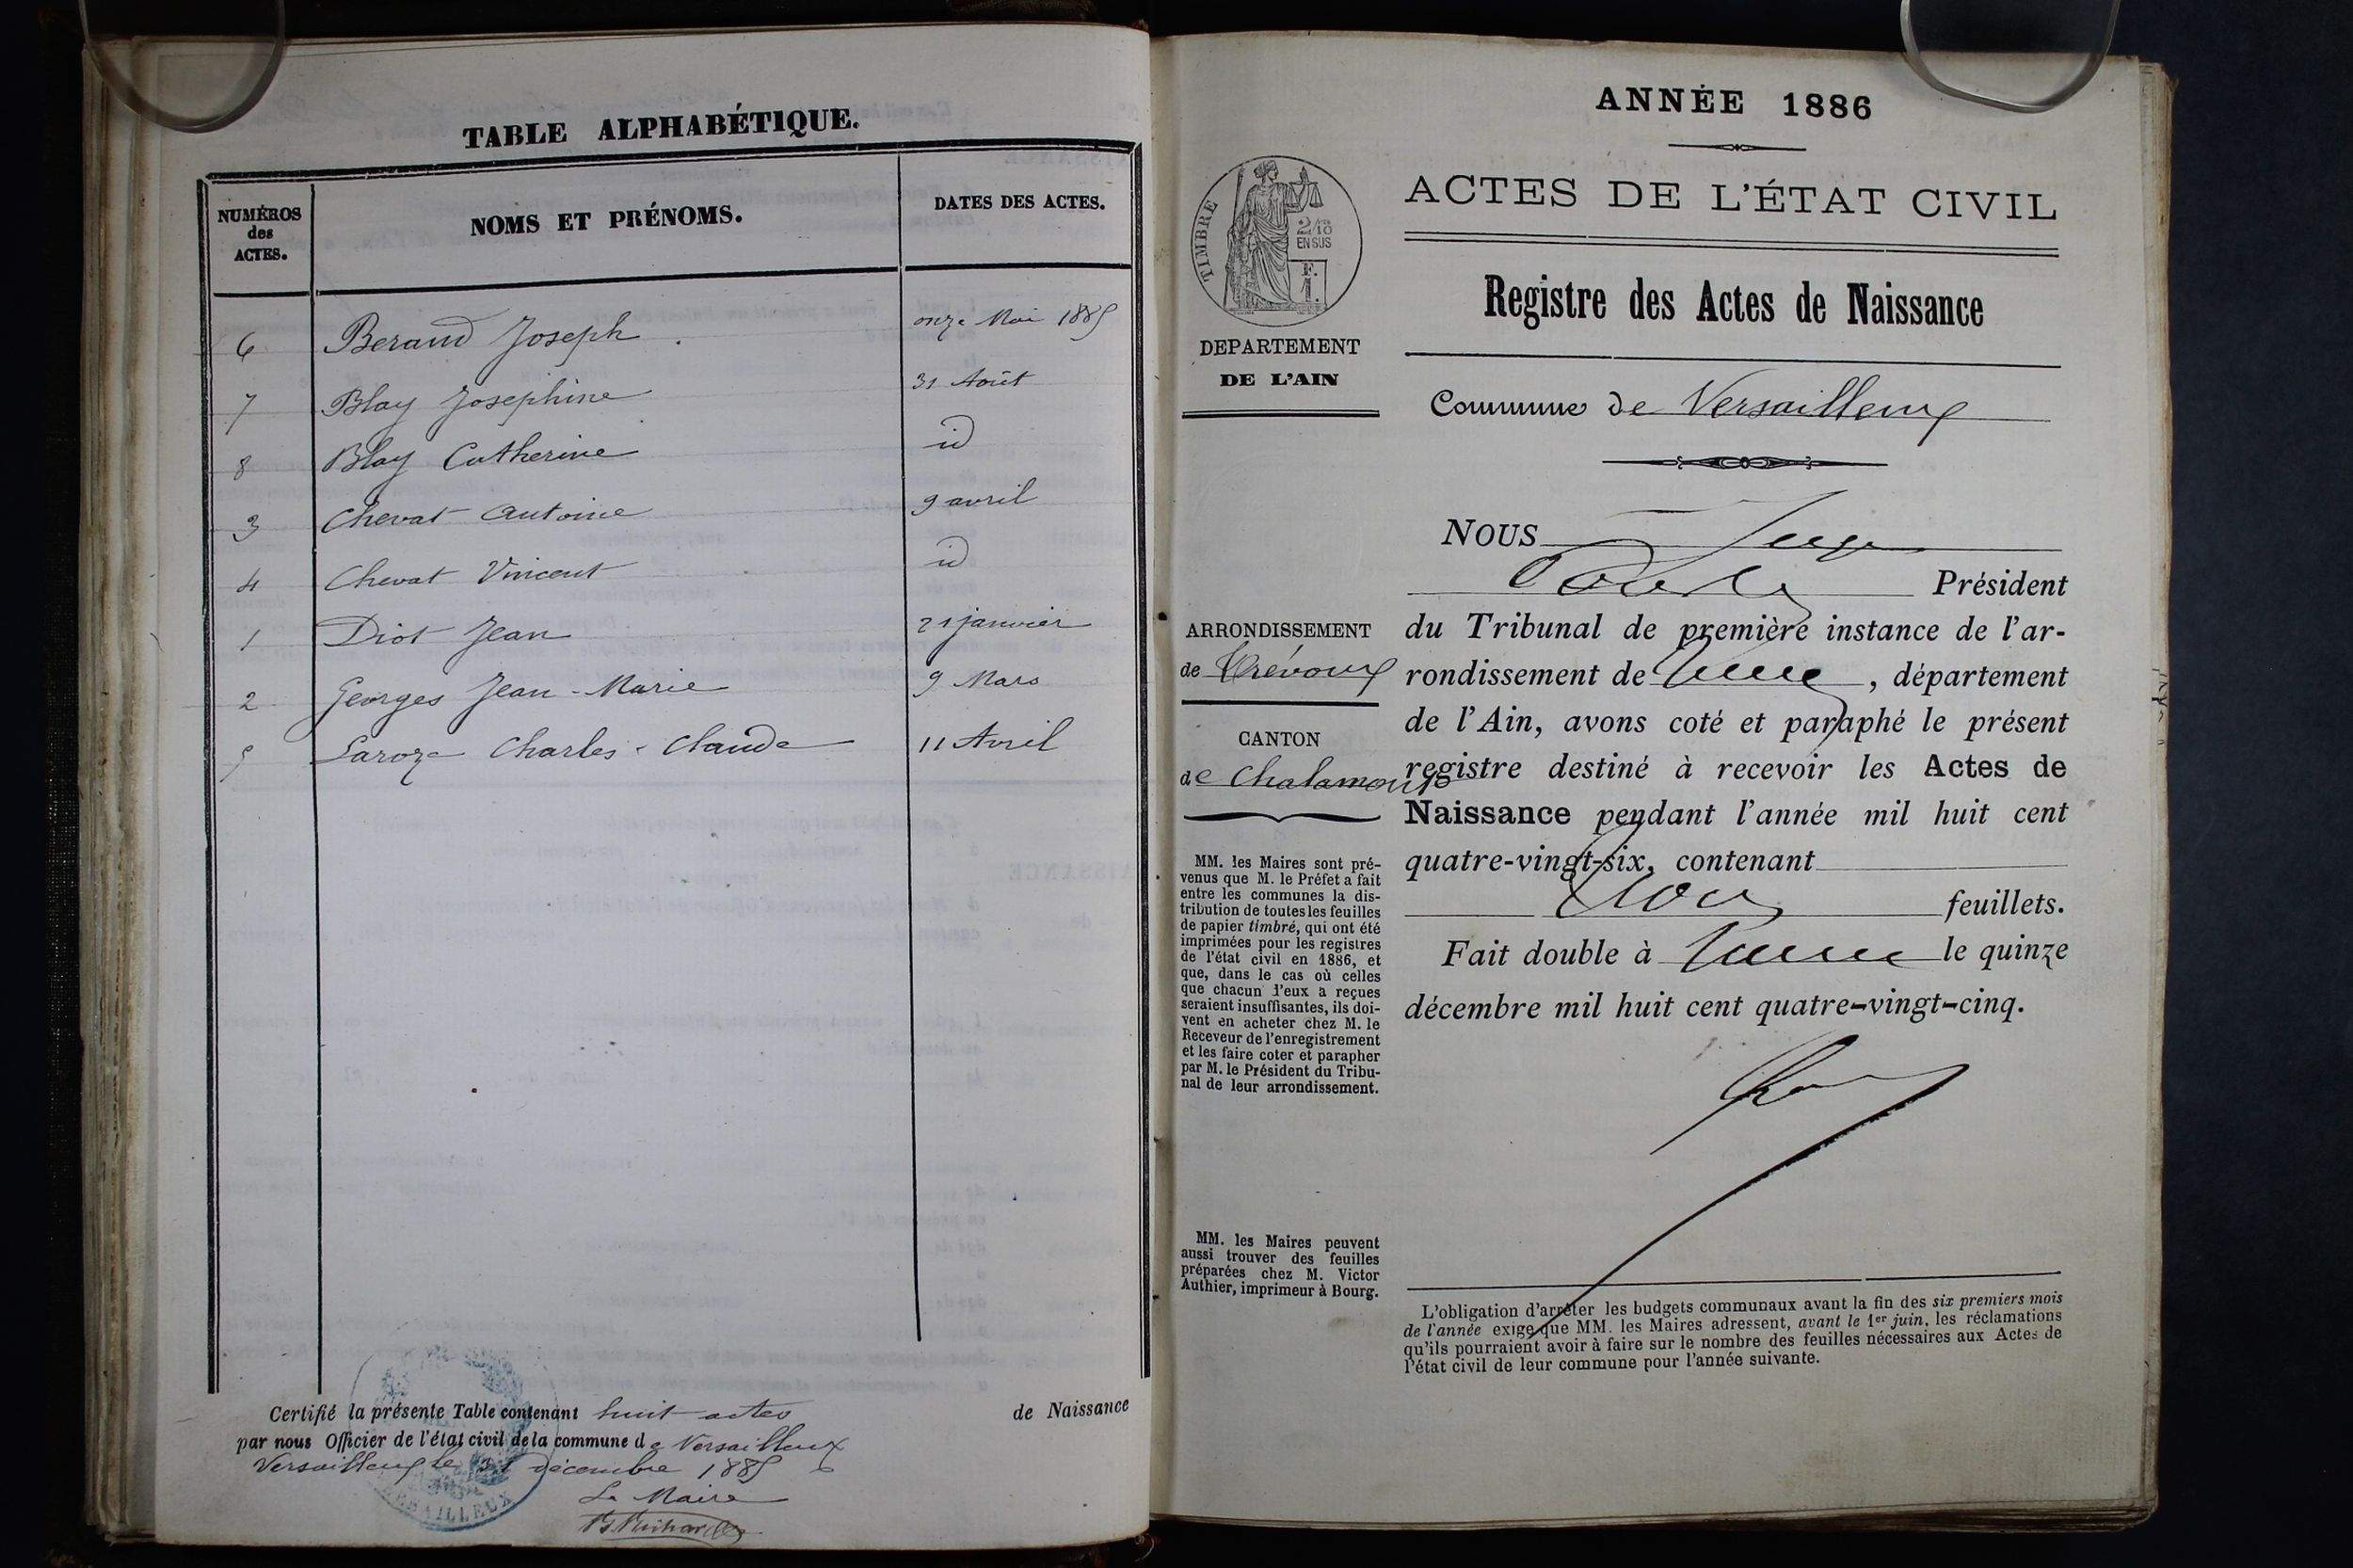 TABLE ALPHABÉTIQUE.
NUMÉROS des ACTES.
NOMS ET PRÉNOMS.
DATES DES ACTES.
6 Beraud Joseph onze Mai 1885
7 Blay Josephine 31 Août
8 Blay Catherine id
3 Chevat Antoine 9 avril
4 Chevat Vincent id
1 Diot Jean 21 janvier
2 Georges Jean-Marie 9 Mars
5 Laroze Charles-Claude 11 Avril
Certifié la présente Table contenant huit actes de Naissance
par nous Officier de l'état civil de la commune de Versailleux
Versailleux le 31 décembre 1885
Le Maire
ANNÉE 1886
TIMBRE
2/10
EN SUS
F.
1.
ACTES DE L'ÉTAT CIVIL
Registre des Actes de Naissance
DEPARTEMENT
DE L'AIN
Commune de Versailleux
ARRONDISSEMENT
de Trévoux
CANTON
de Chalamont
MM. les Maires sont pré-
venus que M. le Préfet a fait
entre les communes la dis-
tribution de toutes les feuilles
de papier timbré, qui ont été
imprimées pour les registres
de l'état civil en 1886, et
que, dans le cas où celles
que chacun d'eux a reçues
seraient insuffisantes, ils doi-
vent en acheter chez M. le
Receveur de l'enregistrement
et les faire coter et parapher
par M. le Président du Tribu-
nal de leur arrondissement.
MM. les Maires peuvent
aussi trouver des feuilles
préparées chez M. Victor
Authier, imprimeur à Bourg.
NOUS Juge
Président
du Tribunal de première instance de l'ar-
rondissement de , département
de l'Ain, avons coté et paraphé le présent
registre destiné à recevoir les Actes de
Naissance pendant l'année mil huit cent
quatre-vingt-six, contenant
feuillets.
Fait double à le quinze
décembre mil huit cent quatre-vingt-cinq.
L'obligation d'arrêter les budgets communaux avant la fin des six premiers mois
de l'année exige que MM. les Maires adressent, avant le 1er juin, les réclamations
qu'ils pourraient avoir à faire sur le nombre des feuilles nécessaires aux Actes de
l'état civil de leur commune pour l'année suivante.